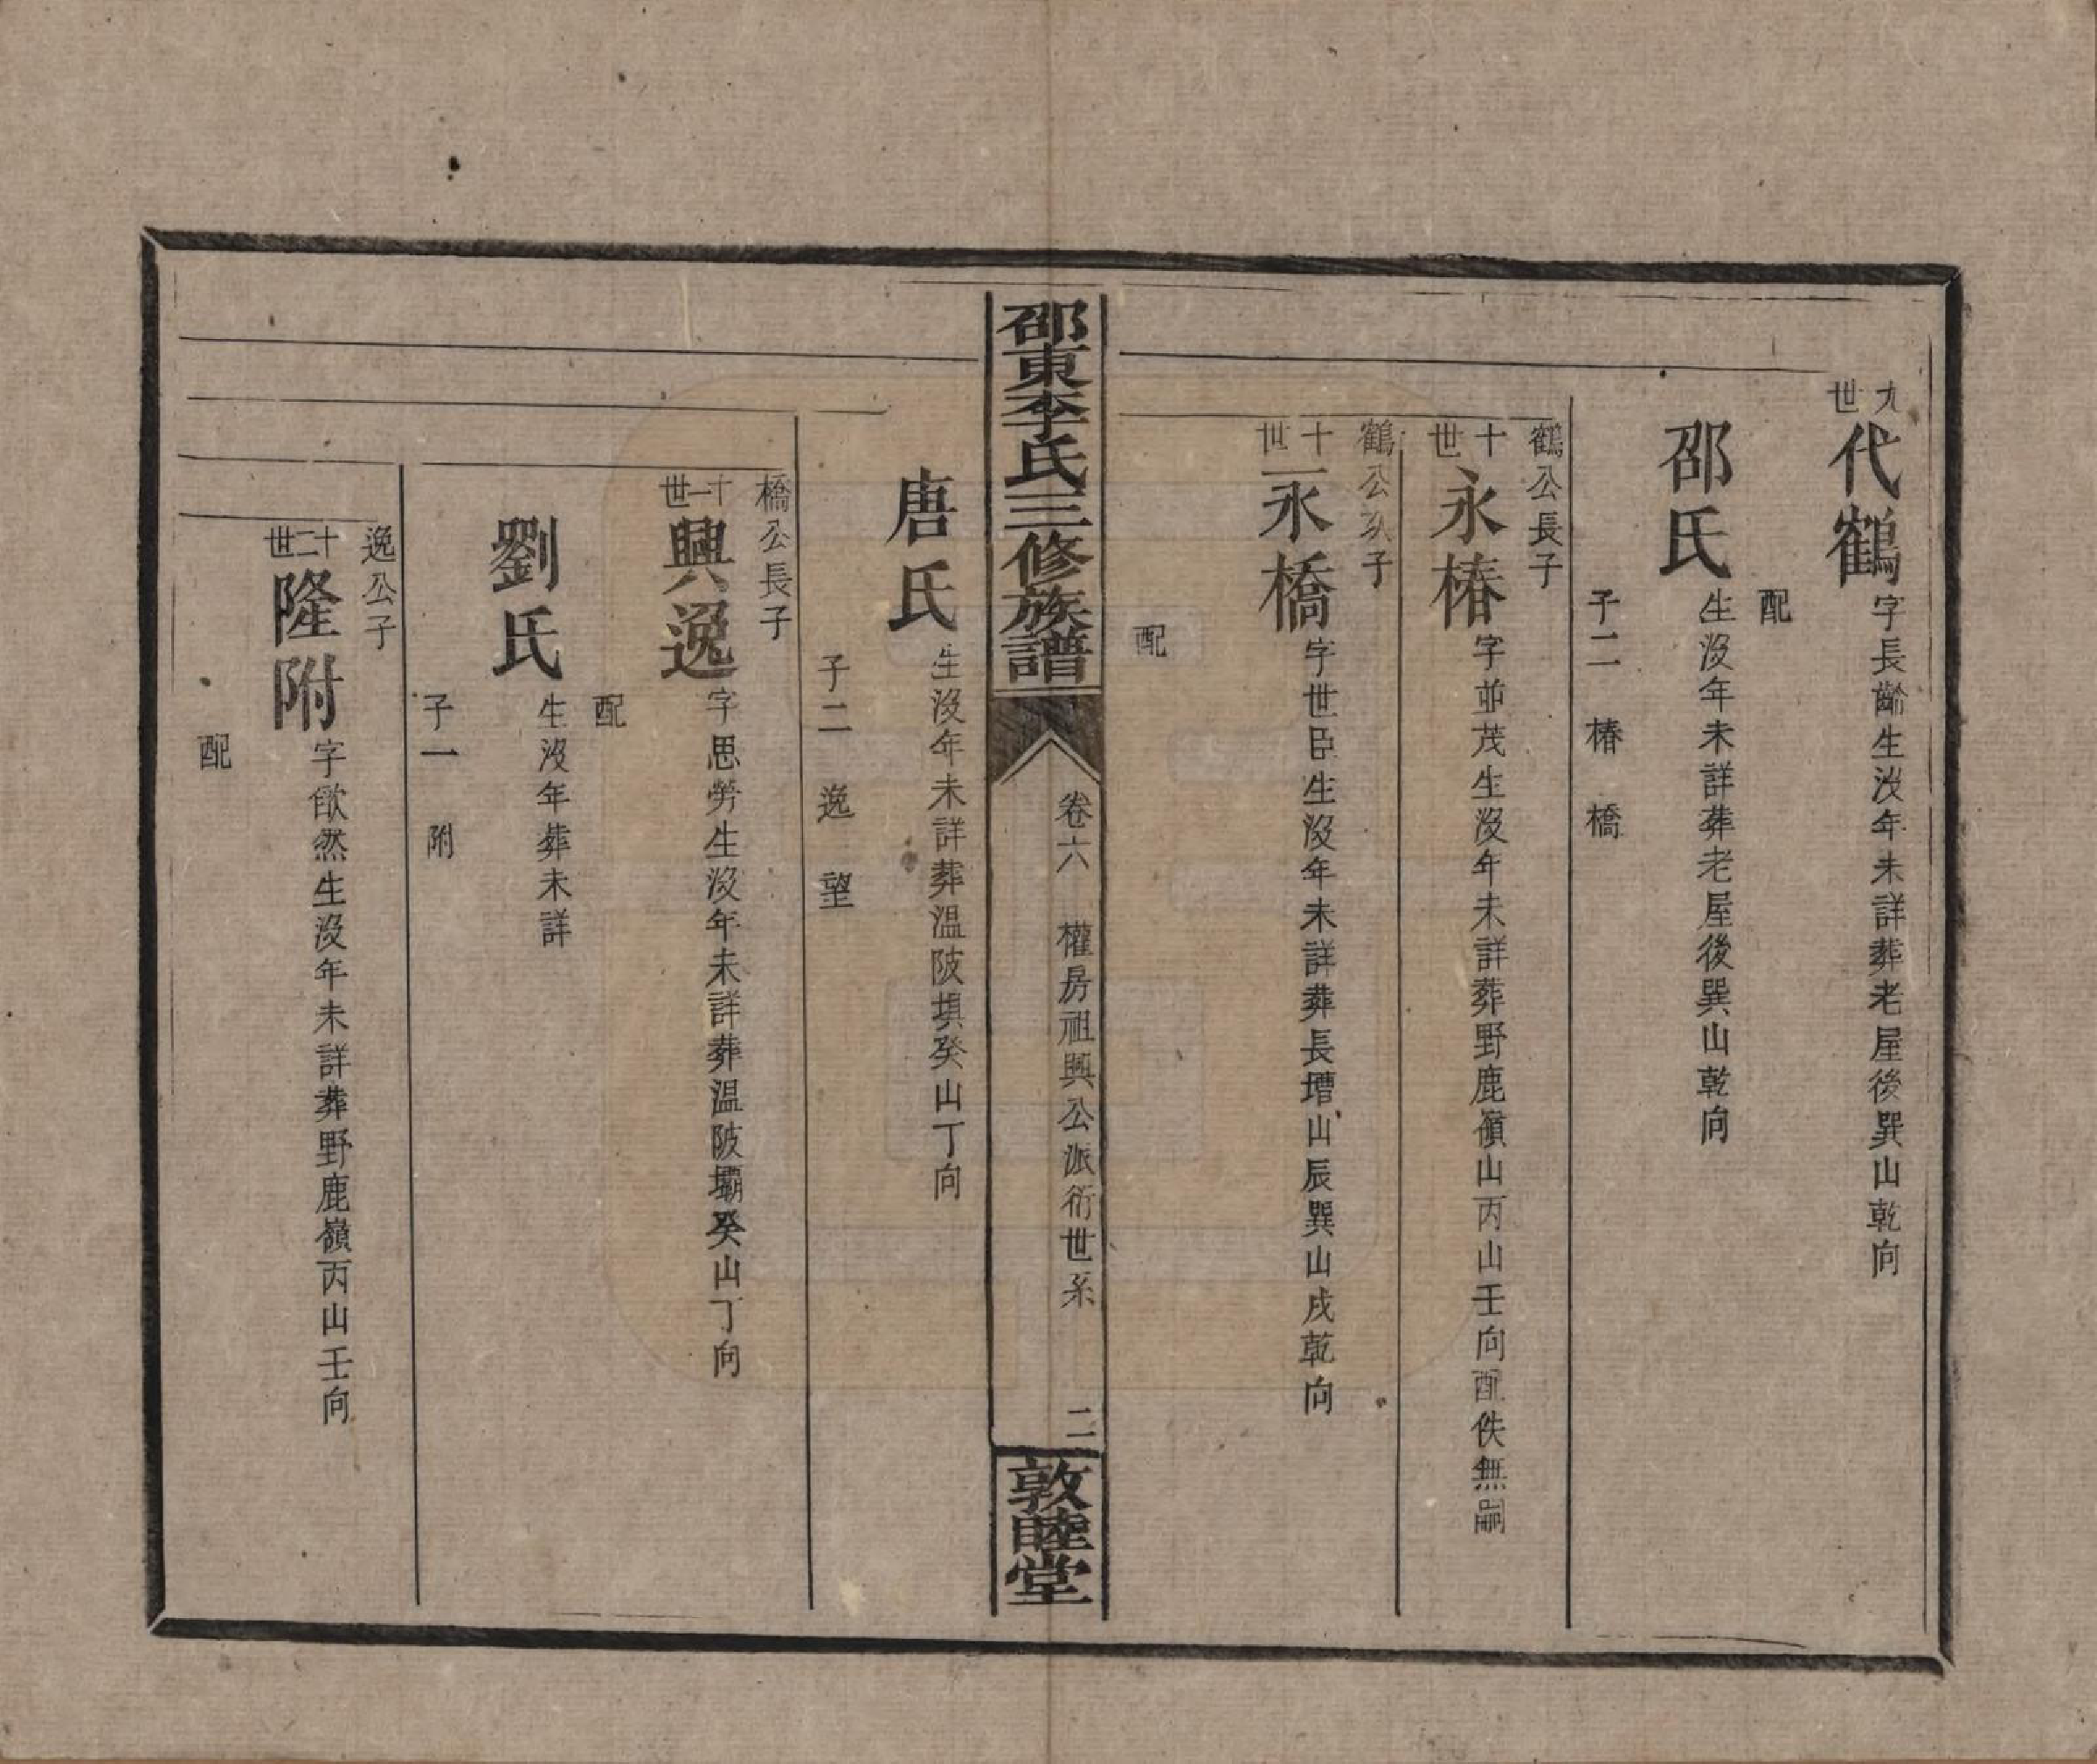 九世
代鶴字長齡生沒年未詳葬老屋後巽山乾向
配
邵氏生沒年未詳葬老屋後巽山乾向
子二 椿 橋
鶴公長子
十世
永椿字並茂生沒年未詳葬野鹿嶺山丙山壬向配佚無嗣
鶴公次子
十世
永橋字世臣生沒年未詳葬長壋山辰巽山戌乾向
配
邵東李氏三修族譜
卷六 權房祖興公派衍世系 二
敦睦堂
唐氏生沒年未詳葬温陂垻癸山丁向
子二 逸 望
橋公長子
十一世
興逸字思勞生沒年未詳葬温陂壩癸山丁向
配
劉氏生沒年葬未詳
子一 附
逸公子
十二世
隆附字歃然生沒年未詳葬野鹿嶺丙山壬向
配